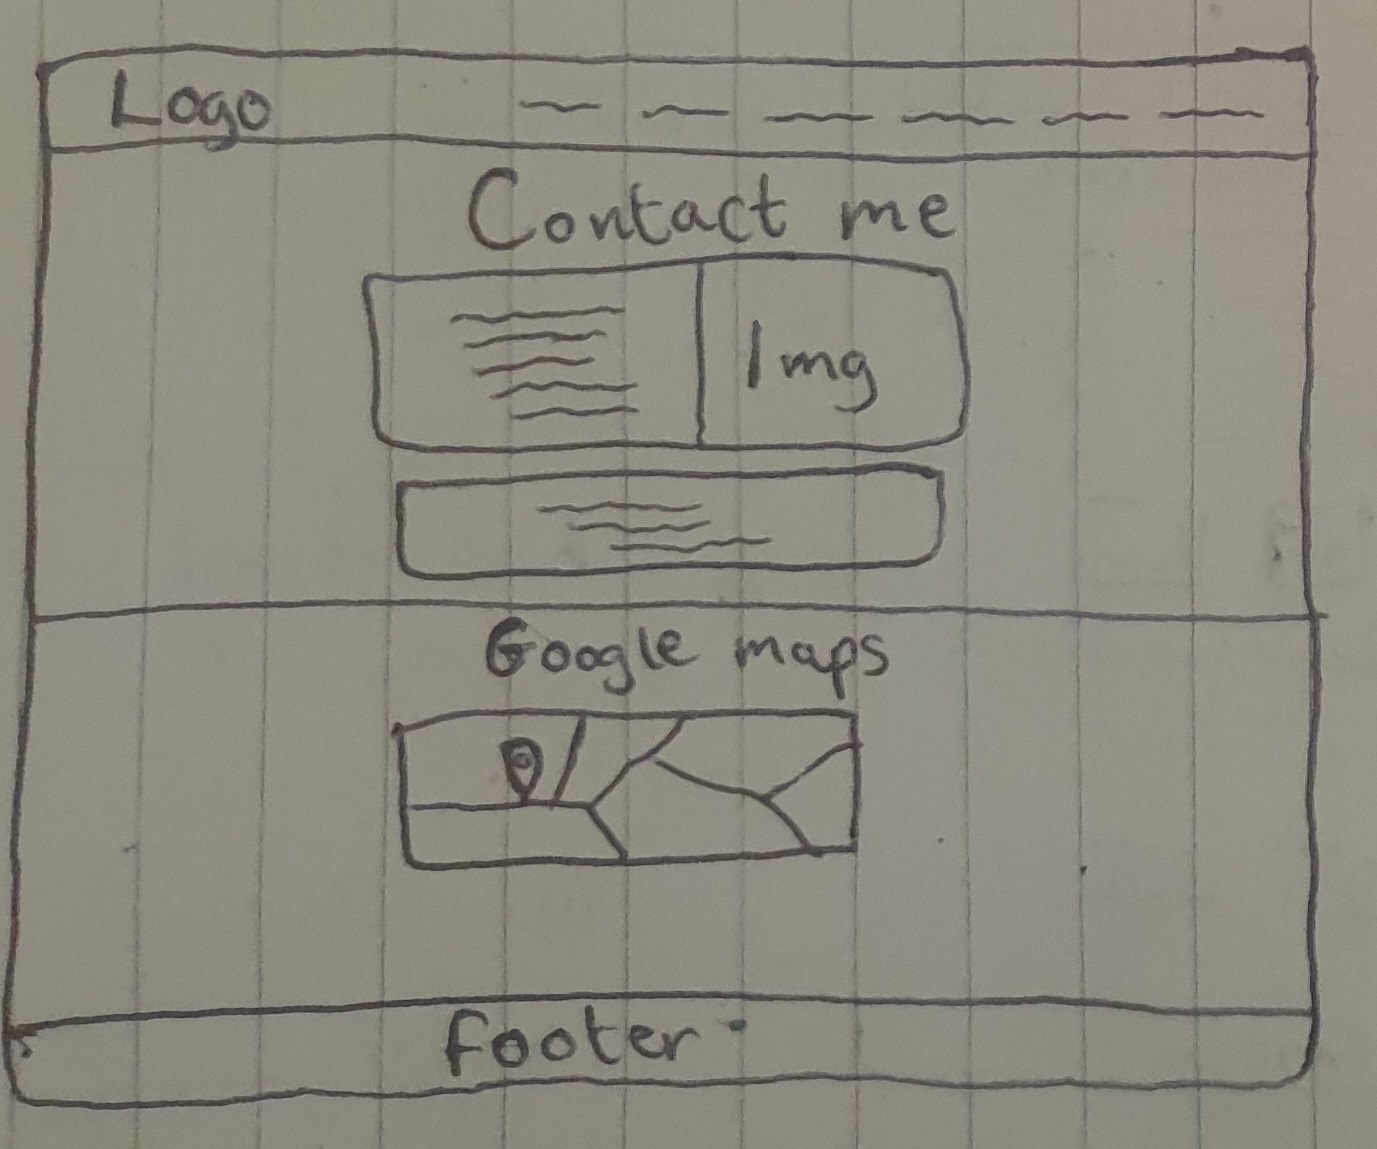 Logo
Contact me
Img
Google maps
footer